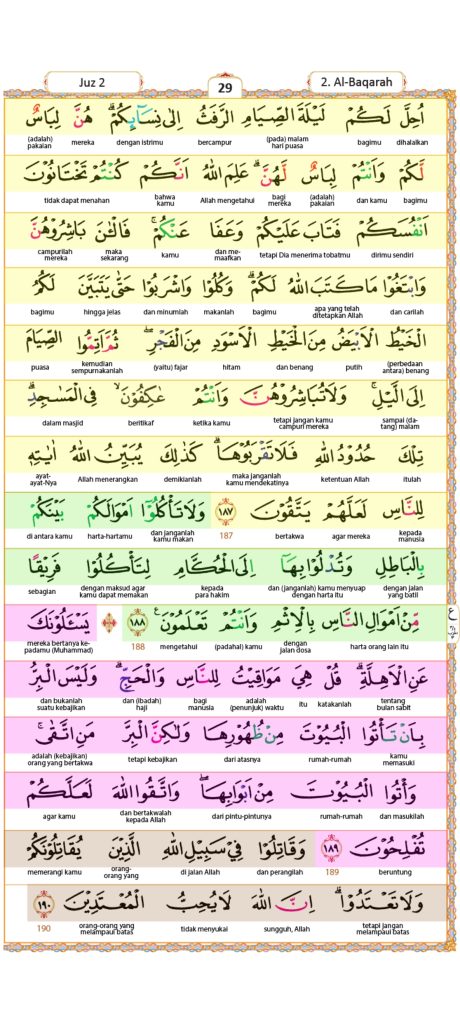 Juz 2
29
2. Al-Baqarah
اُحِلَّ لَكُمْ لَيْلَةَ الصِّيَامِ الرَّفَثُ اِلٰى نِسَاۤىِٕكُمْ ۗ هُنَّ لِبَاسٌ
dihalalkan bagimu (pada) malam hari puasa bercampur dengan istrimu mereka (adalah) pakaian
لَّكُمْ وَاَنْتُمْ لِبَاسٌ لَّهُنَّ ۗ عَلِمَ اللّٰهُ اَنَّكُمْ كُنْتُمْ تَخْتَانُوْنَ
bagimu kamu (adalah) pakaian bagi mereka Allah mengetahui bahwa kamu tidak dapat menahan
اَنْفُسَكُمْ فَتَابَ عَلَيْكُمْ وَعَفَا عَنْكُمْ ۚ فَالْـٰٔنَ بَاشِرُوْهُنَّ
dirimu sendiri tetapi Dia menerima tobatmu dan me- maafkan kamu maka sekarang campurilah mereka
وَابْتَغُوْا مَا كَتَبَ اللّٰهُ لَكُمْ ۗ وَكُلُوْا وَاشْرَبُوْا حَتّٰى يَتَبَيَّنَ لَكُمُ
dan carilah apa yang telah ditetapkan Allah bagimu makanlah dan minumlah hingga jelas bagimu
الْخَيْطُ الْاَبْيَضُ مِنَ الْخَيْطِ الْاَسْوَدِ مِنَ الْفَجْرِ ۖ ثُمَّ اَتِمُّوا الصِّيَامَ
(perbedaan antara) benang putih dan benang hitam (yaitu) fajar kemudian sempurnakanlah puasa
اِلَى الَّيْلِ ۚ وَلَا تُبَاشِرُوْهُنَّ وَاَنْتُمْ عٰكِفُوْنَ ۙ فِى الْمَسٰجِدِ ۗ
sampai (da- tang) malam tetapi jangan kamu campuri mereka ketika kamu beritikaf dalam masjid
تِلْكَ حُدُوْدُ اللّٰهِ فَلَا تَقْرَبُوْهَا ۗ كَذٰلِكَ يُبَيِّنُ اللّٰهُ اٰيٰتِهٖ
itulah ketentuan Allah maka janganlah kamu mendekatinya demikianlah Allah menerangkan ayat- ayat-Nya
لِلنَّاسِ لَعَلَّهُمْ يَتَّقُوْنَ ١٨٧ وَلَا تَأْكُلُوْٓا اَمْوَالَكُمْ بَيْنَكُمْ
kepada manusia agar mereka bertakwa 187 dan janganlah kamu makan harta-hartamu di antara kamu
بِالْبَاطِلِ وَتُدْلُوْا بِهَآ اِلَى الْحُكَّامِ لِتَأْكُلُوْا فَرِيْقًا
dengan jalan yang batil dan (janganlah) kamu menyuap dengan harta itu kepada para hakim dengan maksud agar kamu dapat memakan sebagian
مِّنْ اَمْوَالِ النَّاسِ بِالْاِثْمِ وَاَنْتُمْ تَعْلَمُوْنَ ۚ ١٨٨ يَسْـَٔلُوْنَكَ
harta orang lain itu dengan jalan dosa (padahal) kamu mengetahui 188 mereka bertanya ke- padamu (Muhammad)
عَنِ الْاَهِلَّةِ ۗ قُلْ هِيَ مَوَاقِيْتُ لِلنَّاسِ وَالْحَجِّ ۗ وَلَيْسَ الْبِرُّ
tentang bulan sabit katakanlah itu adalah (penunjuk) waktu bagi manusia dan (ibadah) haji dan bukanlah suatu kebajikan
بِاَنْ تَأْتُوا الْبُيُوْتَ مِنْ ظُهُوْرِهَا وَلٰكِنَّ الْبِرَّ مَنِ اتَّقٰى ۚ
kamu memasuki rumah-rumah dari atasnya tetapi kebajikan adalah (kebajikan) orang yang bertakwa
وَأْتُوا الْبُيُوْتَ مِنْ اَبْوَابِهَا ۖ وَاتَّقُوا اللّٰهَ لَعَلَّكُمْ
dan masukilah rumah-rumah dari pintu-pintunya dan bertakwalah kepada Allah agar kamu
تُفْلِحُوْنَ ١٨٩ وَقَاتِلُوْا فِيْ سَبِيْلِ اللّٰهِ الَّذِيْنَ يُقَاتِلُوْنَكُمْ
beruntung 189 dan perangilah di jalan Allah orang- orang yang memerangi kamu
وَلَا تَعْتَدُوْا ۗ اِنَّ اللّٰهَ لَا يُحِبُّ الْمُعْتَدِيْنَ ١٩٠
tetapi jangan melampaui batas sungguh, Allah tidak menyukai orang-orang yang melampaui batas 190